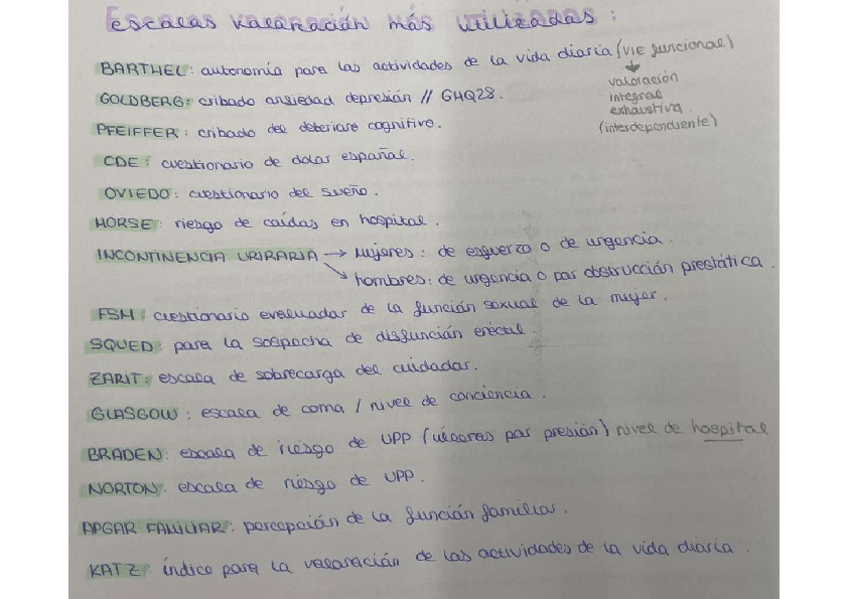 Escalas valoración más utilizadas :
BARTHEL: autonomía para las actividades de la vida diaria (VIE funcional)
valoración
integral
exhaustiva.
(interdependiente)
GOLDBERG: cribado ansiedad depresión // GHQ28.
PFEIFFER: cribado del deterioro cognitivo.
CDE: cuestionario de dolor español.
OVIEDO: cuestionario del sueño.
MORSE: riesgo de caídas en hospital.
INCONTINENCIA URIRARIA → Mujeres: de esguerzo o de urgencia.
↘ hombres: de urgencia o por obstrucción prestática.
FSM: cuestionario evaluador de la función sexual de la mujer.
SQUED: para la sospecha de disfunción eréctil.
ZARIT: escala de sobrecarga del cuidador.
GLASGOW: escala de coma / nivel de conciencia.
BRADEN: escala de riesgo de UPP (úlceras por presión) nivel de hospital
NORTON: escala de riesgo de UPP.
APGAR FAMILIAR: percepción de la función familiar.
KATZ: índice para la valoración de las actividades de la vida diaria.